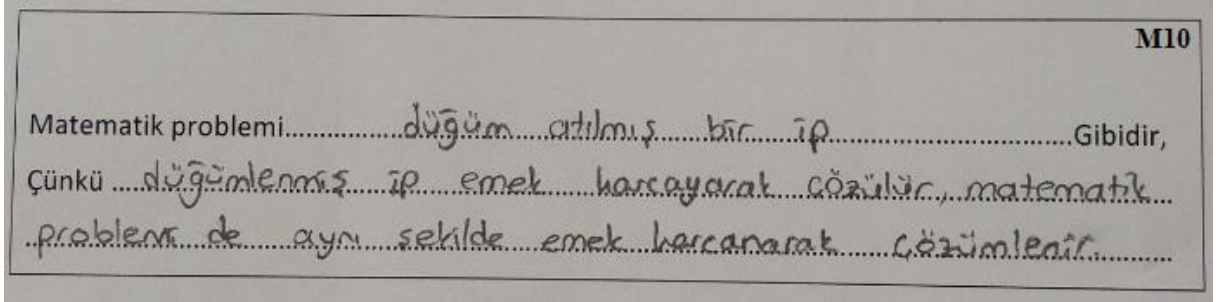 M10
Matematik problemi................düğüm....atılmış......bir.....ip..................................Gibidir,
Çünkü ....düğümlenmiş ip emek harcayarak çözülür, matematik...
..problemi de aynı şekilde emek harcanarak çözümlenir...........